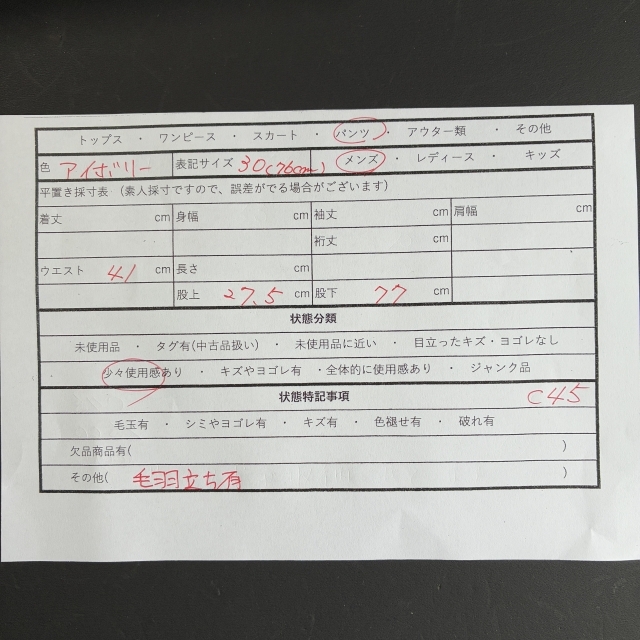 トップス ・ ワンピース ・ スカート ・ パンツ ・ アウター類 ・ その他
色 アイボリー 表記サイズ 30(76cm) メンズ ・ レディース ・ キッズ
平置き採寸表 (素人採寸ですので、誤差がでる場合がございます)
着丈 cm 身幅 cm 袖丈 cm 肩幅 cm
裄丈 cm
ウエスト 41 cm 長さ cm
股上 27.5 cm 股下 77 cm
状態分類
未使用品 ・ タグ有(中古品扱い) ・ 未使用品に近い ・ 目立ったキズ・ヨゴレなし
少々使用感あり ・ キズやヨゴレ有 ・全体的に使用感あり ・ ジャンク品
状態特記事項 C45
毛玉有 ・ シミやヨゴレ有 ・ キズ有 ・ 色褪せ有 ・ 破れ有
欠品商品有( )
その他( 毛羽立ち有 )